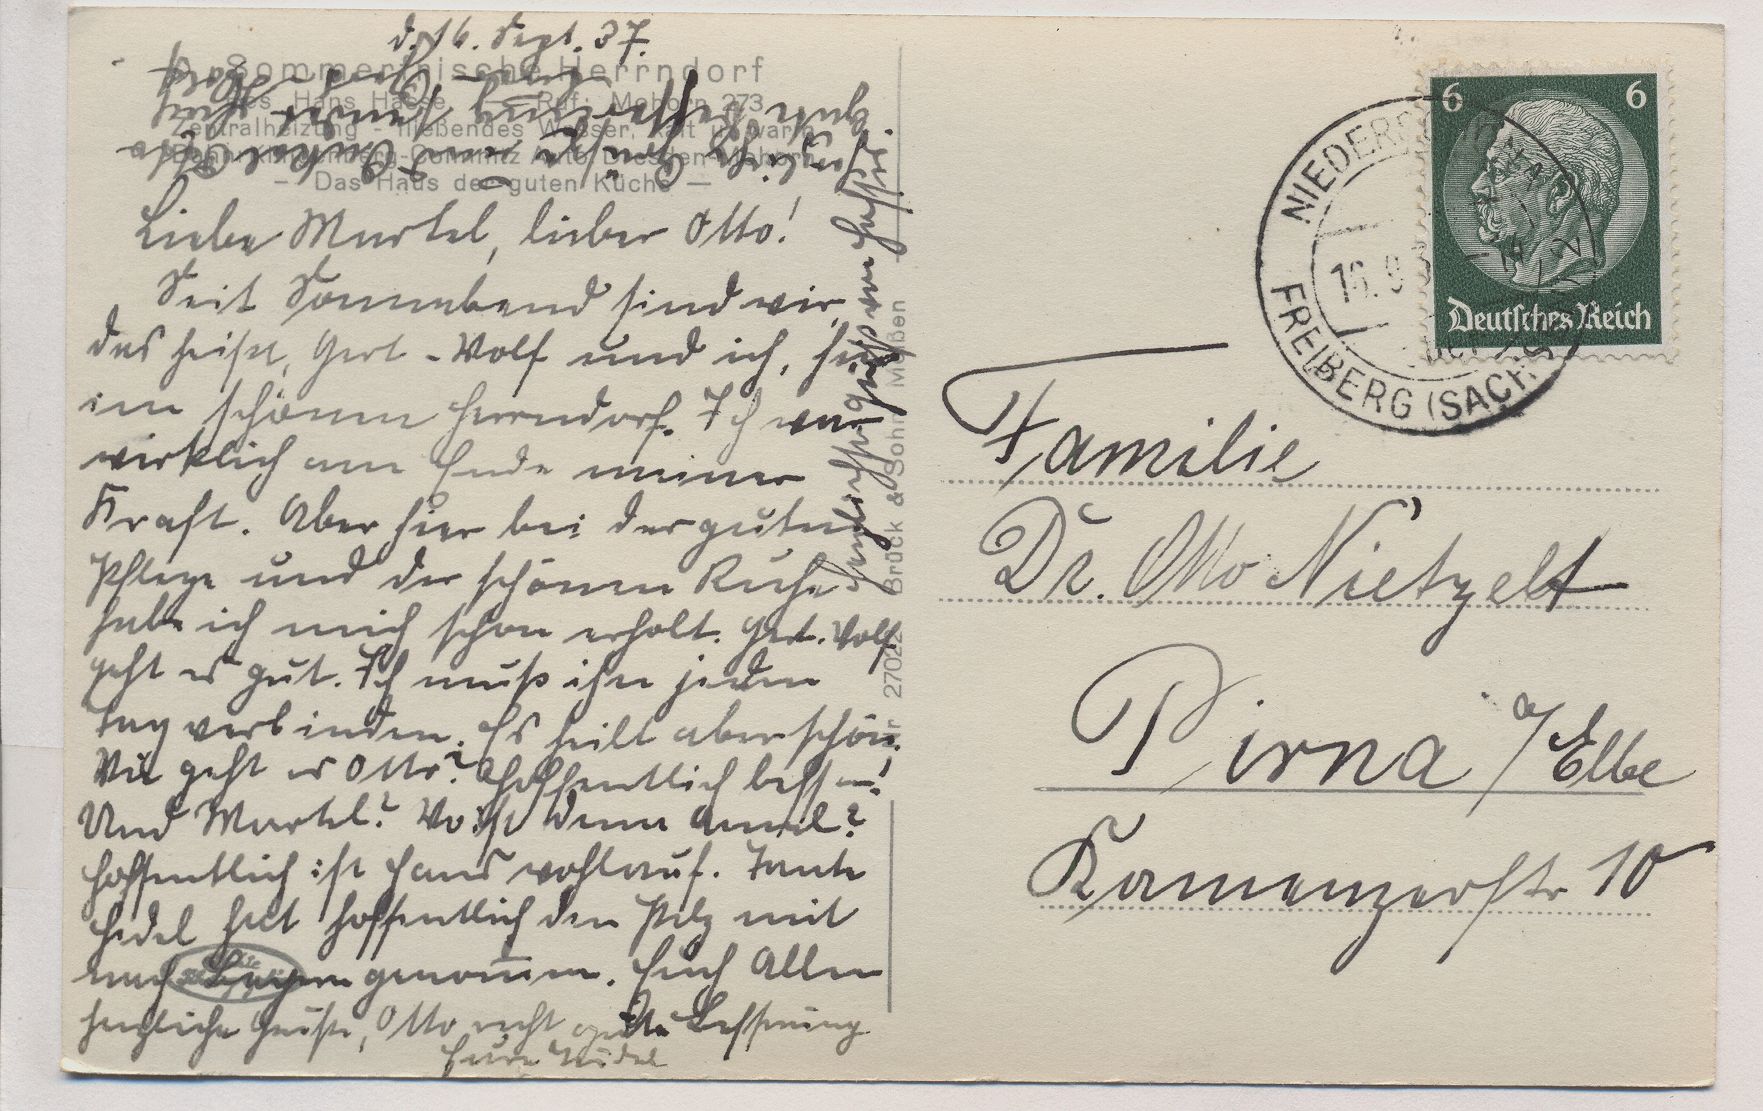 d. 16. Sept. 37.
Sommerfrische Herrndorf
Bes. Hans Hasse Ruf: Mohorn 273
Zentralheizung - fließendes Wasser, kalt u. warm
— Das Haus der guten Küche —
Liebe Martel, lieber Otto!
Seit Sonnabend sind wir,
das heißt, Gert-Wolf und ich, hier
im schönen Herrndorf. Ich war
wirklich am Ende meiner
Kraft. Aber hier bei der guten
Pflege und der schönen Ruhe
habe ich mich schon erholt. Gert-Wolf
geht es gut. Ich muß ihn jeden
Tag verbinden. Es heilt aber schön.
Wie geht es Otto? Hoffentlich besser!
Und Martel? Wo ist denn Annel?
Hoffentlich ist Hans wohlauf. Tante
Hedel hat hoffentlich den Pilz mit
nach genommen. Euch Allen
herzliche Grüße, Otto recht gute Besserung
Eure
Herzliche Grüße von
Brück & Sohn, Meißen
Nr 2702
6 6
Deutsches Reich
NIEDER
FREIBERG (SACHS)
16.9.3
Familie
Dr. Otto Nietzelt
Pirna a/Elbe
Kamenzerstr 10